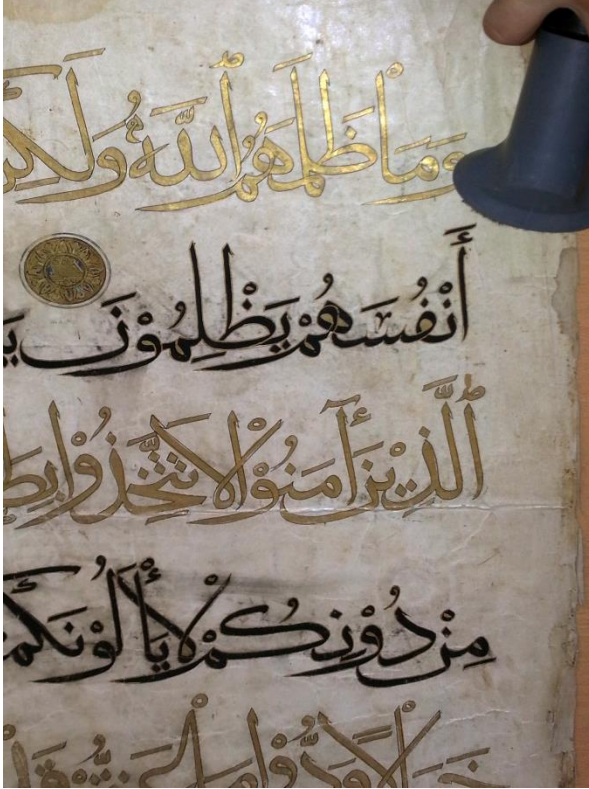 وَمَا ظَلَمَهُمُ ٱللَّهُ وَلَٰكِنْ
أَنْفُسَهُمْ يَظْلِمُوْنَ
ٱلَّذِيْنَ آمَنُوْا لَا تَتَّخِذُوْا
مِنْ دُوْنِكُمْ لَا يَأْلُوْنَكُمْ
خَبَالًا وَدُّوْا مَا عَنِتُّمْ